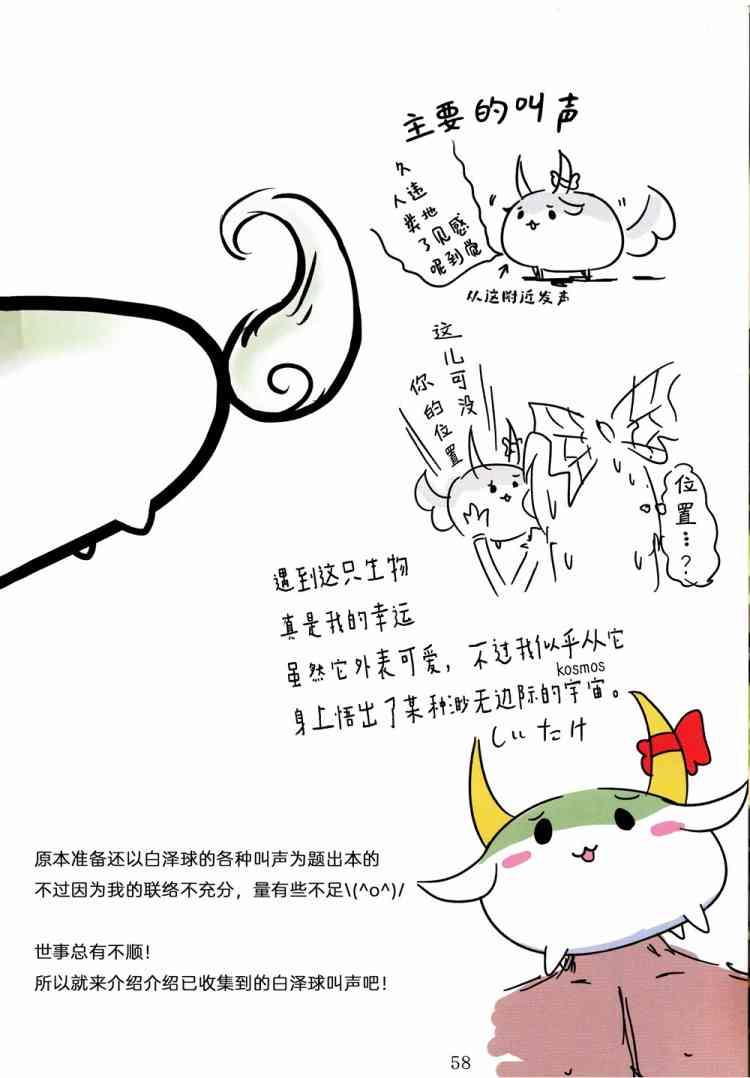 主要的叫声
久违地感觉
人类了见到呢
从这附近发声
这儿可没
你的位置
位置…?
遇到这只生物
真是我的幸运
虽然它外表可爱，不过我似乎从它
kosmos
身上悟出了某种渺无边际的宇宙。
しいたけ
原本准备还以白泽球的各种叫声为题出本的
不过因为我的联络不充分，量有些不足\(^o^)/
世事总有不顺！
所以就来介绍介绍已收集到的白泽球叫声吧！
58